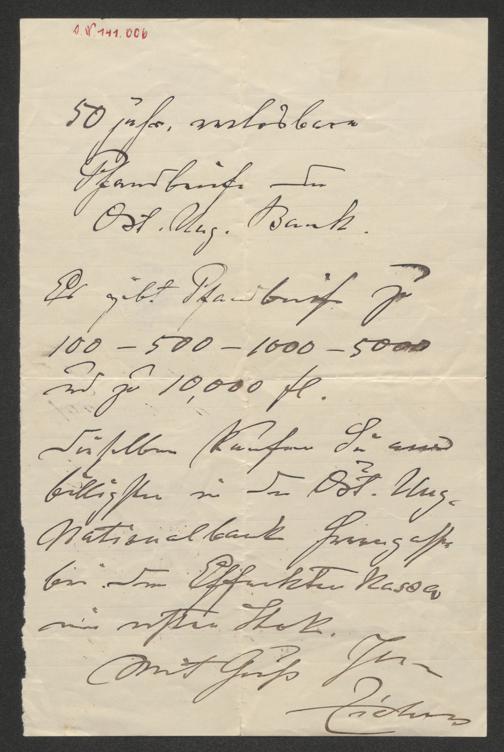 I. N. 141.006
50 jähr. verlosbare
Pfandbriefe der
Öst. Ung. Bank.
Es gibt Pfandbriefe zu
100 – 500 – 1000 – 5000
und zu 10,000 fl.
Dieselben kaufen Sie am
billigsten in der Öst. Ung.
Nationalbank Herrengasse
bei der Effekten Kassa
im ersten Stok.
Mit Gruß Ihr